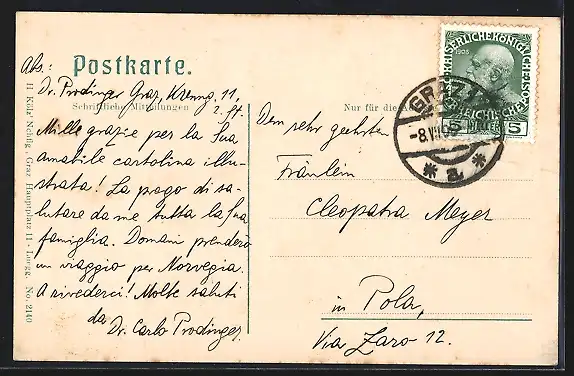 Postkarte.
Abs.:
Dr. Prodinger Graz, Krenng. 11,
2. St.
Schriftliche Mitteilungen
Nur für die
Mille grazie per la Sua
amabile cartolina illu-
strata! La prego di sa-
lutare da me tutta la Sua
famiglia. Domani prenderò
un viaggio per Norvegia.
A rivederci! Molte saluti
da
Dr. Carlo Prodinger
Dem sehr geehrten
Fräulein
Cleopatra Meyer
in Pola,
Via Zaro 12.
GRAZ
5 5
1908
Graz, Hauptplatz 11 - Luegg. No. 2140